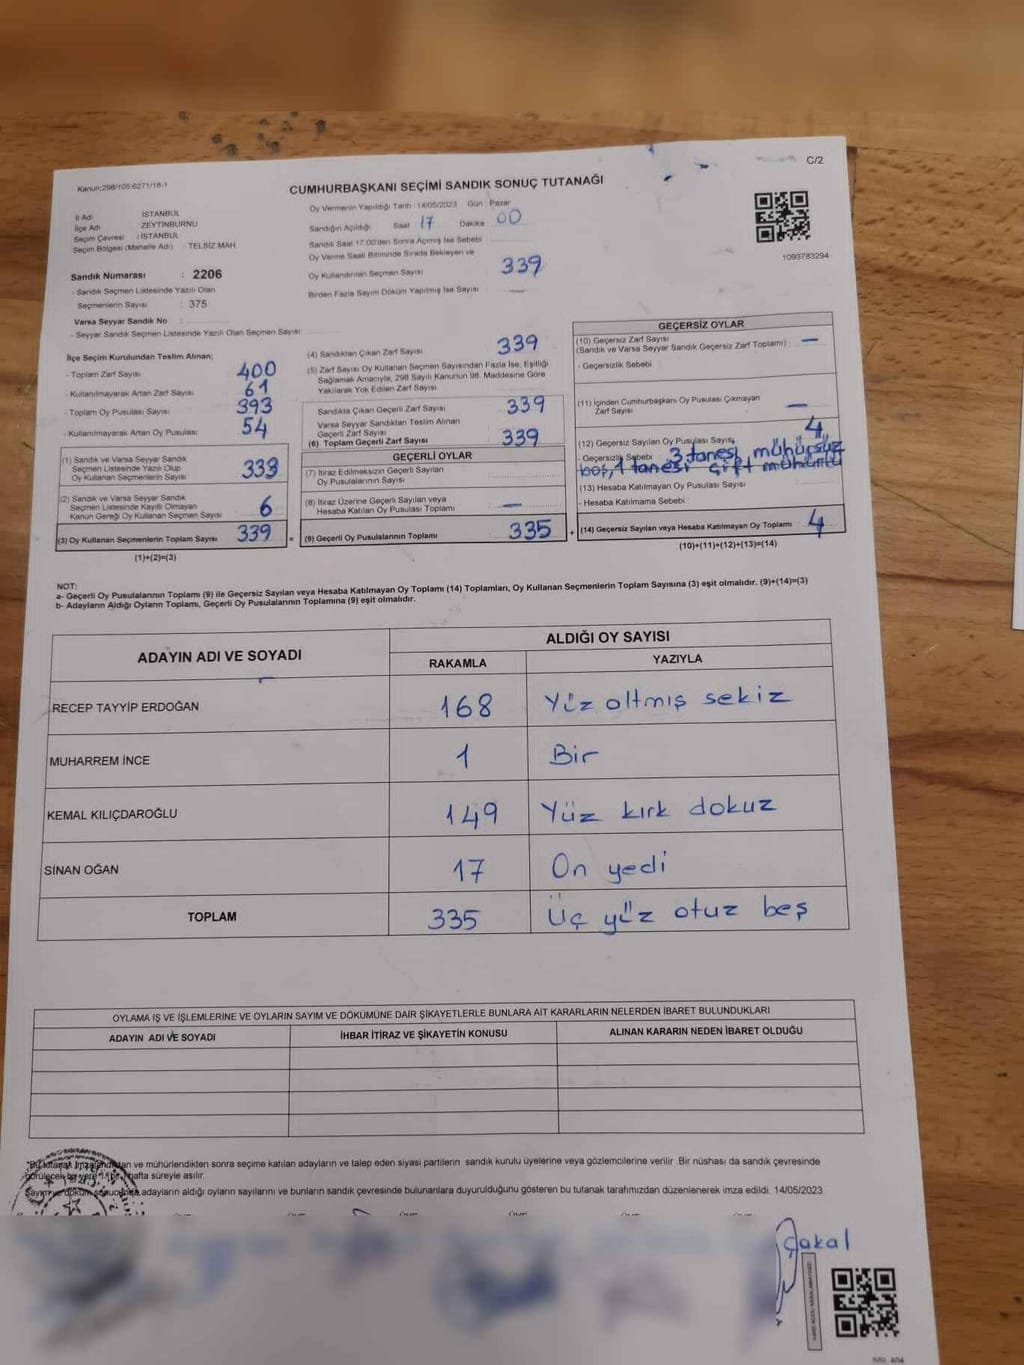 C/2
Kanun:298/105:6271/18-1
CUMHURBAŞKANI SEÇİMİ SANDIK SONUÇ TUTANAĞI
İl Adı : İSTANBUL
İlçe Adı : ZEYTİNBURNU
Seçim Çevresi : İSTANBUL
Seçim Bölgesi (Mahalle Adı) : TELSİZ MAH.
Oy Vermenin Yapıldığı Tarih : 14/05/2023 Gün : Pazar
Sandığın Açıldığı Saat 17 Dakika 00
Sandık Saat 17.00'den Sonra Açılmış İse Sebebi
Oy Verme Saati Bitiminde Sırada Bekleyen ve
Oy Kullandırılan Seçmen Sayısı 339
Birden Fazla Sayım Döküm Yapılmış İse Sayısı —
1093783294
Sandık Numarası : 2206
- Sandık Seçmen Listesinde Yazılı Olan
Seçmenlerin Sayısı : 375
Varsa Seyyar Sandık No
- Seyyar Sandık Seçmen Listesinde Yazılı Olan Seçmen Sayısı
İlçe Seçim Kurulundan Teslim Alınan;
- Toplam Zarf Sayısı 400
- Kullanılmayarak Artan Zarf Sayısı 61
- Toplam Oy Pusulası Sayısı 393
- Kullanılmayarak Artan Oy Pusulası 54
(1) Sandık ve Varsa Seyyar Sandık
Seçmen Listesinde Yazılı Olup
Oy Kullanan Seçmenlerin Sayısı 333
(2) Sandık ve Varsa Seyyar Sandık
Seçmen Listesinde Kayıtlı Olmayan
Kanun Gereği Oy Kullanan Seçmen Sayısı 6
(3) Oy Kullanan Seçmenlerin Toplam Sayısı 339
(1)+(2)=(3)
(4) Sandıktan Çıkan Zarf Sayısı 339
(5) Zarf Sayısı Oy Kullanan Seçmen Sayısından Fazla İse, Eşitliği
Sağlamak Amacıyla, 298 Sayılı Kanunun 98. Maddesine Göre
Yakılarak Yok Edilen Zarf Sayısı
Sandıkta Çıkan Geçerli Zarf Sayısı 339
Varsa Seyyar Sandıktan Teslim Alınan
Geçerli Zarf Sayısı
(6) Toplam Geçerli Zarf Sayısı 339
GEÇERLİ OYLAR
(7) İtiraz Edilmeksizin Geçerli Sayılan
Oy Pusulalarının Sayısı
(8) İtiraz Üzerine Geçerli Sayılan veya
Hesaba Katılan Oy Pusulası Toplamı —
= (9) Geçerli Oy Pusulalarının Toplamı 335
GEÇERSİZ OYLAR
(10) Geçersiz Zarf Sayısı —
(Sandık ve Varsa Seyyar Sandık Geçersiz Zarf Toplamı) :
- Geçersizlik Sebebi
(11) İçinden Cumhurbaşkanı Oy Pusulası Çıkmayan
Zarf Sayısı —
(12) Geçersiz Sayılan Oy Pusulası Sayısı 4
- Geçersizlik Sebebi 3 tanesi mühürsüz
boş, 1 tanesi çift mühürlü
(13) Hesaba Katılmayan Oy Pusulası Sayısı
- Hesaba Katılmama Sebebi
+ (14) Geçersiz Sayılan veya Hesaba Katılmayan Oy Toplamı 4
(10)+(11)+(12)+(13)=(14)
NOT:
a- Geçerli Oy Pusulalarının Toplamı (9) ile Geçersiz Sayılan veya Hesaba Katılmayan Oy Toplamı (14) Toplamları, Oy Kullanan Seçmenlerin Toplam Sayısına (3) eşit olmalıdır. (9)+(14)=(3)
b- Adayların Aldığı Oyların Toplamı, Geçerli Oy Pusulalarının Toplamına (9) eşit olmalıdır.
ADAYIN ADI VE SOYADI
ALDIĞI OY SAYISI
RAKAMLA YAZIYLA
RECEP TAYYİP ERDOĞAN 168 Yüz oltmış sekiz
MUHARREM İNCE 1 Bir
KEMAL KILIÇDAROĞLU 149 Yüz kırk dokuz
SİNAN OĞAN 17 On yedi
TOPLAM 335 Üç yüz otuz beş
OYLAMA İŞ VE İŞLEMLERİNE VE OYLARIN SAYIM VE DÖKÜMÜNE DAİR ŞİKAYETLERLE BUNLARA AİT KARARLARIN NELERDEN İBARET BULUNDUKLARI
ADAYIN ADI VE SOYADI İHBAR İTİRAZ VE ŞİKAYETİN KONUSU ALINAN KARARIN NEDEN İBARET OLDUĞU
ve mühürlendikten sonra seçime katılan adayların ve talep eden siyasi partilerin sandık kurulu üyelerine veya gözlemcilerine verilir. Bir nüshası da sandık çevresinde
hafta süreyle asılır.
adayların aldığı oyların sayılarını ve bunların sandık çevresinde bulunanlara duyurulduğunu gösteren bu tutanak tarafımızdan düzenlenerek imza edildi. 14/05/2023
Çakal